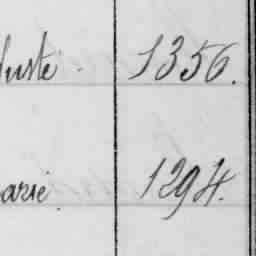 uste 1356.
arie 1294.